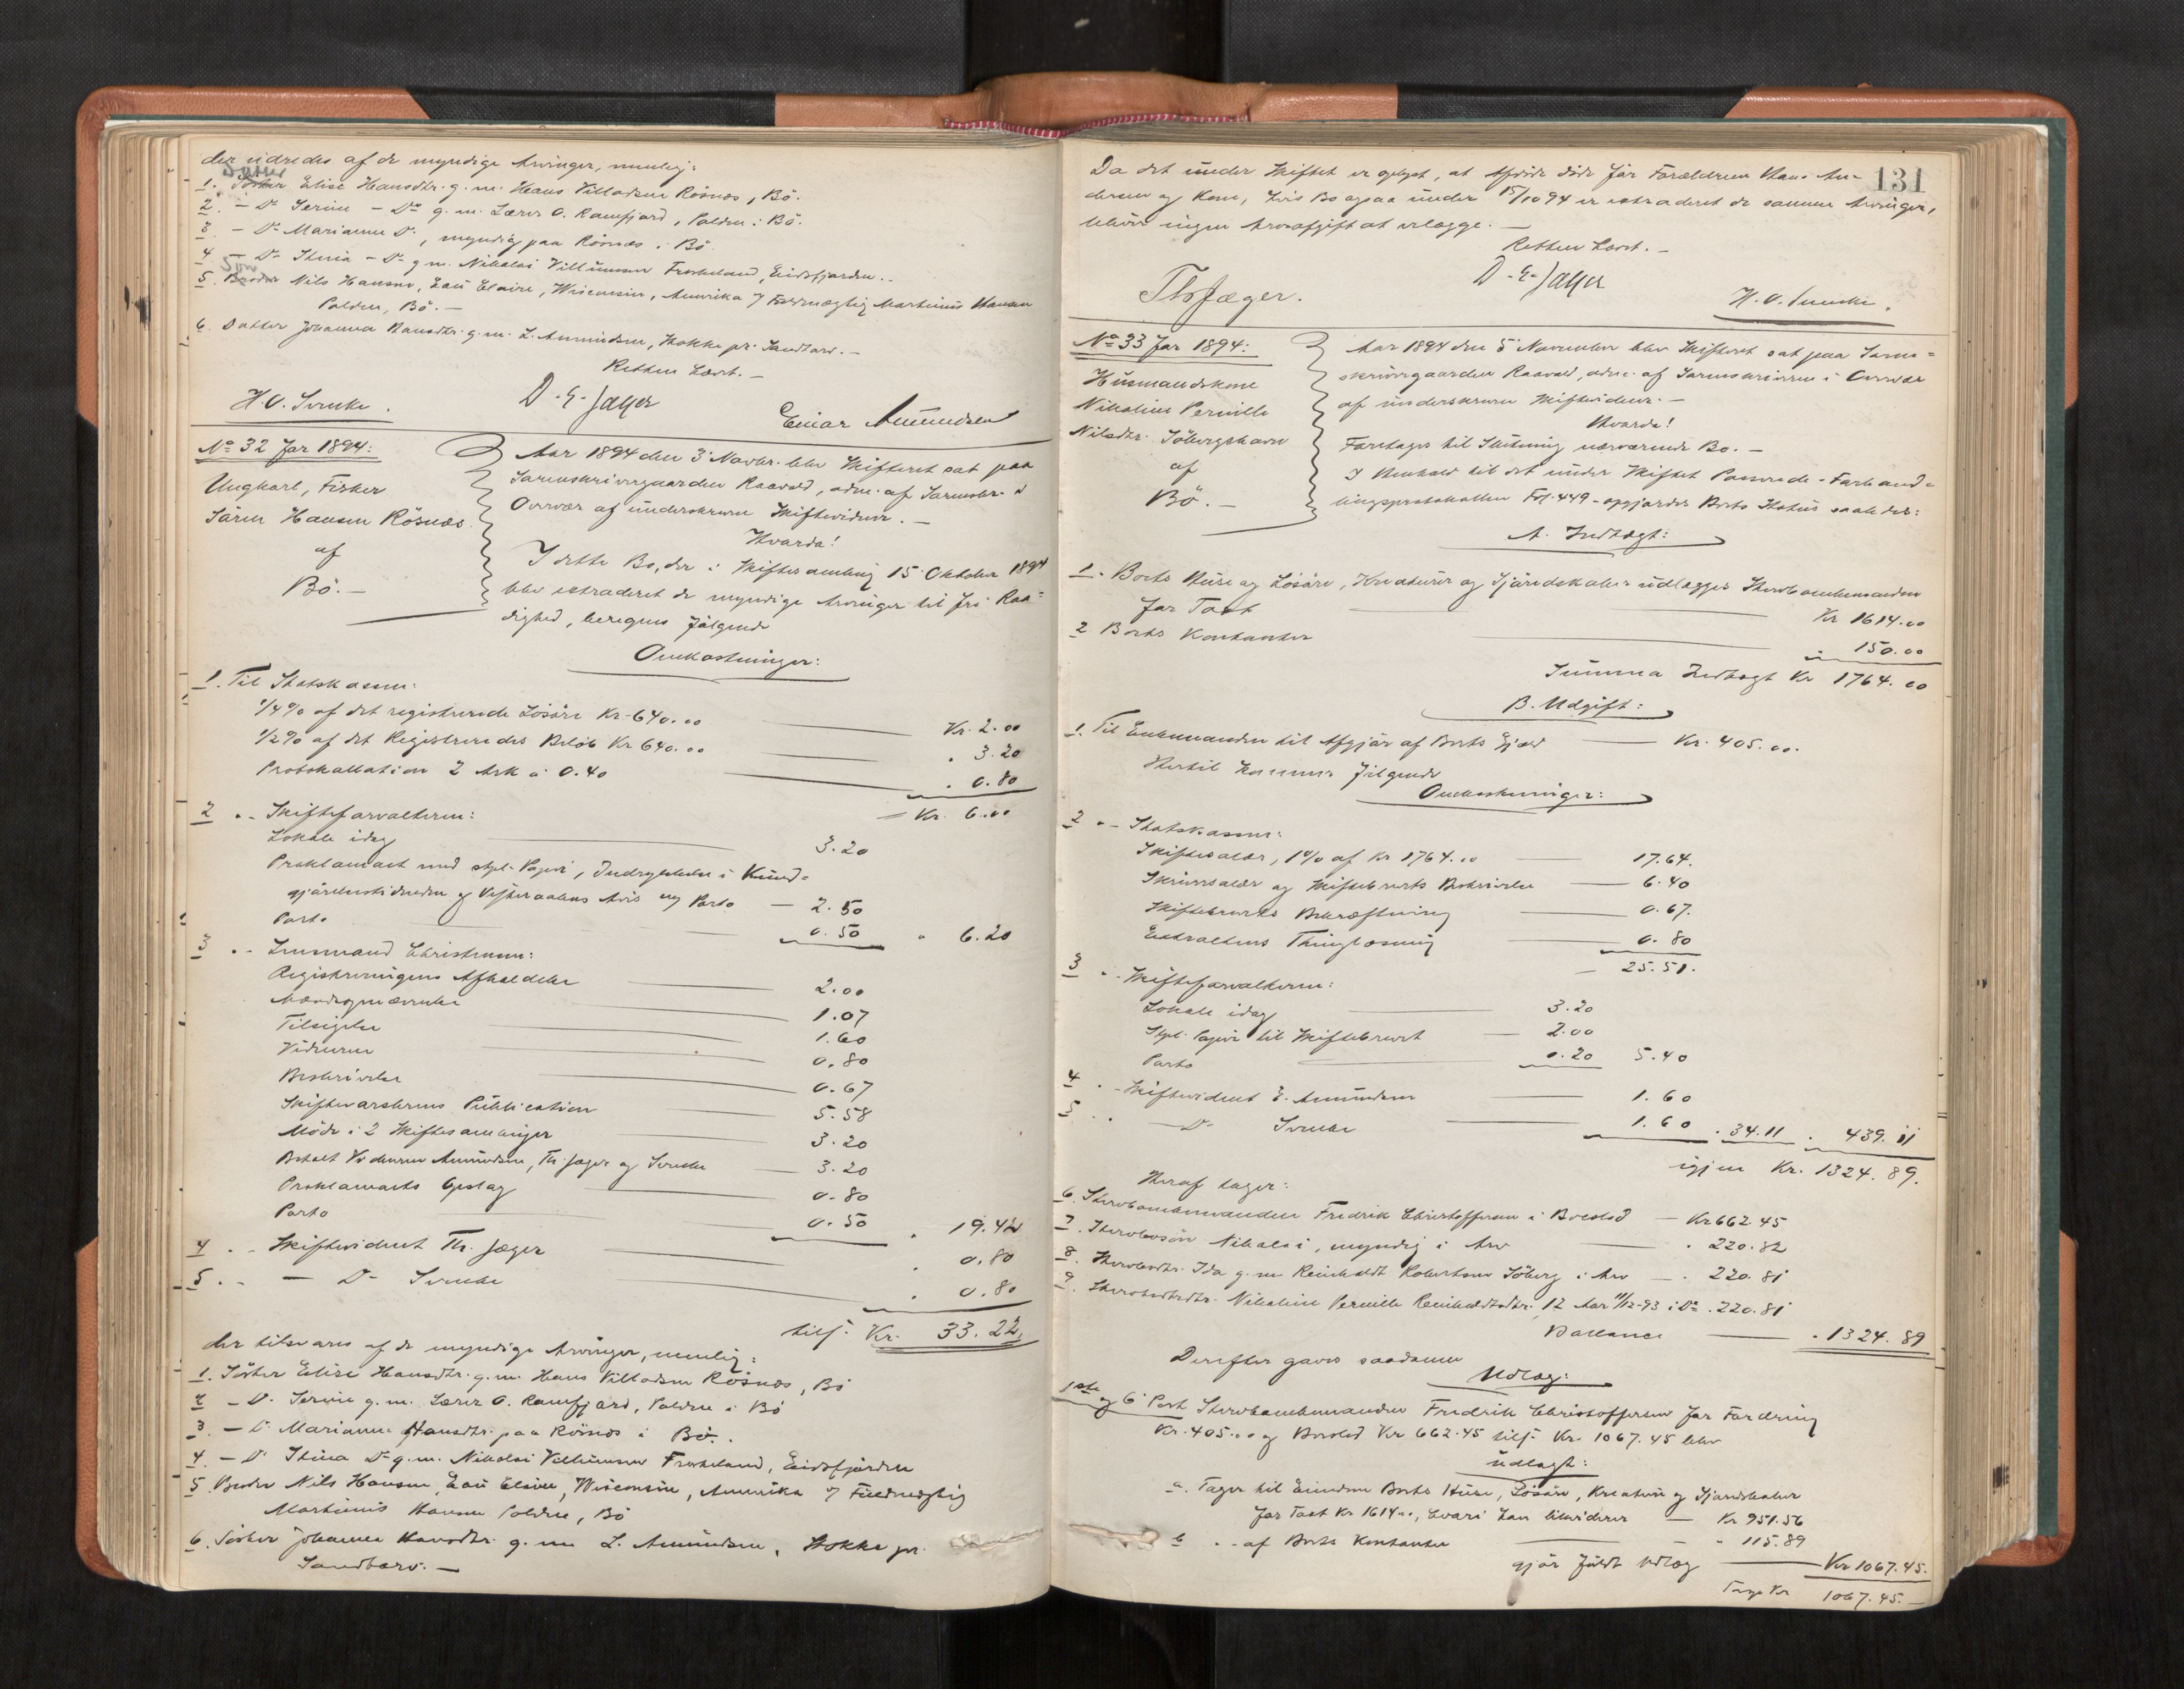 der udredes af de myndige Arvinger, nemlig:
Datter
1. Søster Elise Hansdtr. g. m. Hans Villadsen Rösnæs, Bö.
2. - Do Serine - Do g. m. Lærer O. Ramfjord, Polden i Bö.
3. - Do Marianne Do, myndig paa Rösnæs i Bö.
4. - Do Thina - Do g. m. Nikolai Villumsen Froskeland, Eidsfjorden.
Sön
5. Broder Nils Hansen, Eau Claire, Wisconsin, Amerika Martinus Hansen
Polden, Bö. -
6. Datter Johanna Hansdtr. g. m. L. Amundsen, Stokke pr. Sandtorv. -
Retten hævt. -
H. O. D. E. Jæger Einar Amundsen
No 32 for 1894:
Ungkarl, Fisker
Sören Hansen Rösnæs
af
Bö. -
Aar 1894 den 3 Novbr. blev Skifteret sat paa
Sorenskrivergaarden Raavold, adm. af Sorenskr. i
Overvær af underskrevne Skiftevidner. -
Hvorda!
I dette Bo, der i Skiftesamling 15 Oktober 1894
blev extraderet de myndige Arvinger til fri Raa=
dighed, beregnes fölgende
Omkostninger:
1. Til Statskassen:
1/4 % af det registrerede Lösöre Kr. 640.00 Kr. 2.00
1/2 % af det Registreredes Belöb Kr 640.00 " 3.20
Protokollation 2 Ark à 0.40 " 0.80
Kr. 6.00
2 " - Skifteforvalteren:
Lokale idag 3.20
Proklamaet med stpl. Papir, Indrykkelse i Kund=
gjörelsestidenden og Vesteraalens Avis og Porto - 2.50
Porto 0.50 " 6.20
3 " - Lensmand Christensen:
Registreringens Afholdelse 2.00
Mandsopnævnelse 1.07
Tilsigelse 1.60
Vidnerne 0.80
Beskrivelse 0.67
Skiftevarslerens Publication 5.58
Möde i 2 Skiftesamlinger 3.20
Betalt Vidnerne Amundsen, Th. Jæger og 3.20
Proklamaets Opslag 0.80
Porto 0.50 " 19.42
4 " - Skiftevidnet Th. Jæger " 0.80
5 " - - Do " 0.80
tils. Kr. 33.22.
der tilsvares af de myndige Arvinger, nemlig:
1. Söster Elise Hansdtr. g. m. Hans Villadsen Rösnæs, Bö
2 - Do Serine g. m. Lærer O. Ramfjord, Polden i Bö
3. - Do Marianne Hansdtr. paa Rösnæs i Bö.
4. - Do Thina Do g. m. Nikolai Villumsen Froskeland, Eidsfjorden
5 Broder Nils Hansen, Eau Claire, Wisconsin, Amerika
Martinus Hansen Polden, Bö
6. Söster Johanna Hansdtr. g. m. L. Amundsen, Stokke pr.
Sandtorv. -
131
Da det under Skiftet er oplyst, at Afdöde döde för Forældrene Hans An-
dersen og Kone, hvis Bo ogsaa under 15/10 94 er extraderet de samme Arvinger,
bliver ingen Arveafgift at erlægge. -
Retten hævt. -
Th. Jæger. D. E. Jæger H. O.
No 33 for 1894:
Husmandskone
Nikoline Pernille
Nilsdtr. Söbergshavn
af
Bö. -
Aar 1894 den 5 November blev Skifteret sat paa Soren=
skrivergaarden Raavold, adm. af Sorenskriveren i Overvær
af underskrevne Skiftevidner. -
Hvorda!
Foretages til Slutning nærværende Bo. -
I Henhold til det under Skiftet Passerede - Forhand=
lingsprotokollen Fol. 449 - opgjordes Boets Status saaledes:
A. Indtægt:
1. Boets Huse og Lösöre, Kreaturer og Sjöredskaber udlægges Stervboenkemanden
for Taxt Kr 1614.00
2 Boets Kontanter " 150.00
Summa Indtægt Kr 1764.00
B. Udgift:
1. Til Enkemanden til Afgjör af Boets Gjæld Kr. 405.00.
Hertil kommer fölgende
Omkostninger:
2 " - Statskassen:
Skiftesalær, 1% af Kr 1764.00 17.64.
Skriversalær og Skiftebrevets Beskrivelse 6.40
Skiftebrevets Bekræftning 0.67.
Extraktens Thinglæsning 0.80
25.51.
3 " - Skifteforvalteren:
Lokale idag 3.20
Stpl. Papir til Skiftebrevet 2.00
Porto 0.20 5.40
4 " - Skiftevidnet E. Amundsen 1.60
5 " - Do 1.60 " 34.11 " 439.11
igjen Kr. 1324.89.
Heraf tager:
6. Stervboenkemanden Fredrik Christoffersen i Boeslod Kr 662.45
7. Stervbosön Nikolai, myndig i Arv " 220.82
8. Stervbodtr. Ida g. m. Reinholdt Robertsen Söberg i Arv " 220.81
9. Stervbodtrdtr. Nikoline Pernille Reinholdtsdtr. 12 Aar 11/12-93 i Do " 220.81
Ballance " 1324.89
Derefter gaves saadanne
Udlæg:
1ste og 6 Post Stervboenkemanden Fredrik Christoffersen for Fordring
Kr. 405.00 og Boeslod Kr 662.45 tils. Kr. 1067.45 blev
udlagt:
a. Tager til Eiendom Boets Huse, Lösöre, Kreaturer og Sjöredskaber
for Taxt Kr 1614.00, hvori han likviderer Kr 951.56
b " - af Boets Kontanter " 115.89
gjör fuldt Udlæg Kr 1067.45.
Kr 1067.45. -